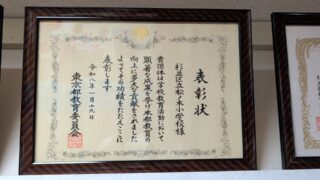 表彰状
杉並区立松ノ木小学校様
貴団体は学校教育活動において
顕著な成果を挙げ本都教育の
向上に多大な貢献をされました
よってその功績をたたえここに
表彰します
令和八年一月十九日
東京都教育委員会